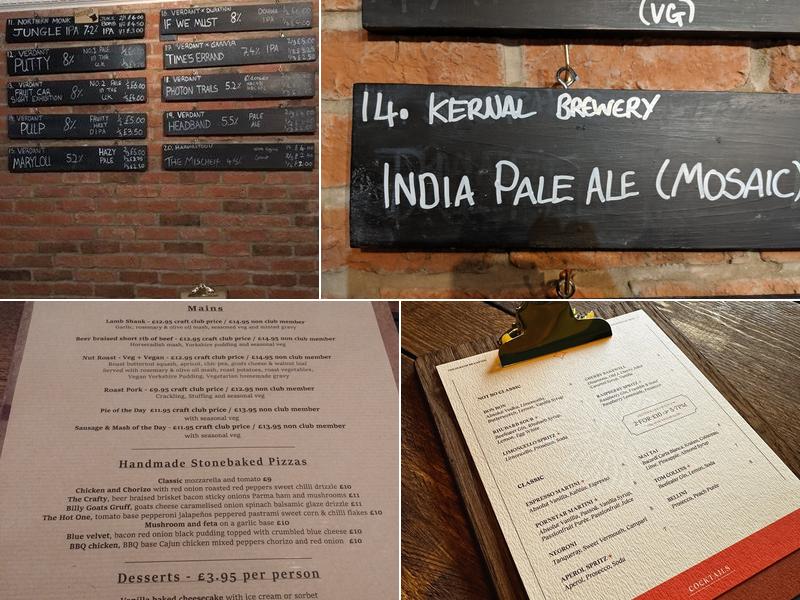 11. NORTHERN MONK
JUNGLE IPA 7.2%
IPA
12. VERDANT
PUTTY 8%
NO.1 PALE
IN THE
U.K
13. VERDANT
FRUIT CAR
SIGHT EXHIBITION 8%
NO.2 PALE
IN THE
U.K
£4.00
14. VERDANT
PULP 8%
FRUITY
HAZY
DIPA
£5.00
£3.50
15. VERDANT
MARYLOU 5.2%
HAZY
PALE
IF WE MUST 8%
17. VERDANT x GAMMA
TIMES ERRAND 7.4% IPA
18. VERDANT
PHOTON TRAILS 5.2%
19. VERDANT
HEADBAND 5.5%
PALE
ALE
20.
THE MISCHIEF
(VG)
14. KERNAL BREWERY
INDIA PALE ALE (MOSAIC)
Mains
Lamb Shank - £12.95 craft club price / £14.95 non club member
Garlic, rosemary & olive oil mash, seasoned veg and minted gravy
Beer braised short rib of beef - £12.95 craft club price / £14.95 non club member
Horseradish mash, Yorkshire pudding and seasonal veg
Nut Roast - Veg + Vegan - £12.95 craft club price / £14.95 non club member
Roast butternut squash, apricot, chic pea, goats cheese & walnut loaf
Served with rosemary & olive oil mash, roast potatoes, roast vegetables,
Vegan Yorkshire Pudding, Vegetarian homemade gravy
Roast Pork - £9.95 craft club price / £12.95 non club member
Crackling, Stuffing and seasonal veg
Pie of the Day £11.95 craft club price / £13.95 non club member
with seasonal veg
Sausage & Mash of the Day - £11.95 craft club price / £13.95 non club member
with seasonal veg
Handmade Stonebaked Pizzas
Classic mozzarella and tomato £9
Chicken and Chorizo with red onion roasted red peppers sweet chilli drizzle £11
The Crafty, beer braised brisket bacon sticky onions Parma ham and mushrooms £11
Billy Goats Gruff, goats cheese caramelised onion spinach balsamic glaze drizzle £11
The Hot One, tomato base pepperoni jalapeños peppered pastrami sweet corn & chilli flakes £10
Mushroom and feta on a garlic base £10
Blue velvet, bacon red onion black pudding topped with crumbled blue cheese £10
BBQ chicken, BBQ base Cajun chicken mixed peppers chorizo and red onion £10
Desserts - £3.95 per person
Vanilla baked cheesecake with ice cream or sorbet
NOT SO CLASSIC
BON BON
Absolut Vodka, Limoncello,
Butterscotch, Lemon, Vanilla Syrup
RHUBARB SOUR
Beefeater Gin, Rhubarb Syrup,
Lemon, Egg White
LIMONCELLO SPRITZ
Limoncello, Prosecco, Soda
CHERRY BAKEWELL
RASPBERRY SPRITZ
Raspberry Lemonade, Prosecco
2 FOR £10
CLASSIC
ESPRESSO MARTINI
Absolut Vanilla, Kahlúa, Espresso
PORNSTAR MARTINI
Absolut Vanilla, Passoã, Vanilla Syrup,
Passionfruit Purée, Passionfruit Juice
NEGRONI
Tanqueray, Sweet Vermouth, Campari
APEROL SPRITZ
Aperol, Prosecco, Soda
MAI TAI
Bacardi Carta Blanca, Kraken, Cointreau,
Lime, Pineapple, Almond Syrup
TOM COLLINS
Beefeater Gin, Lemon, Soda
BELLINI
Prosecco, Peach Purée
7
COCKTAILS